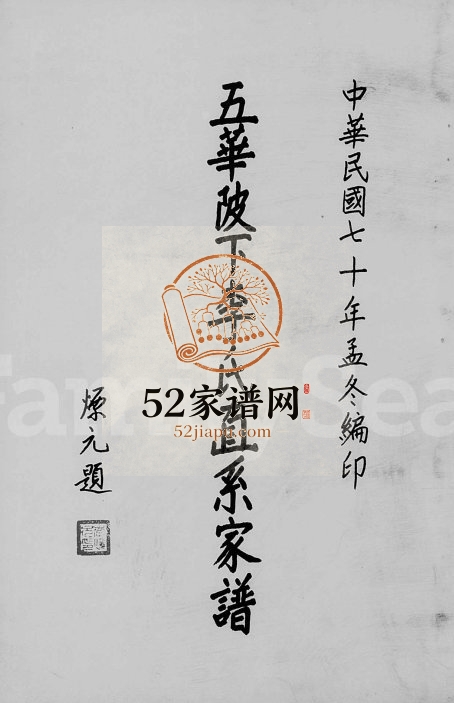 中華民國七十年孟冬編印
五華陂下李氏直系家譜
燎元題
52家谱网
52jiapu.com
Family Sea